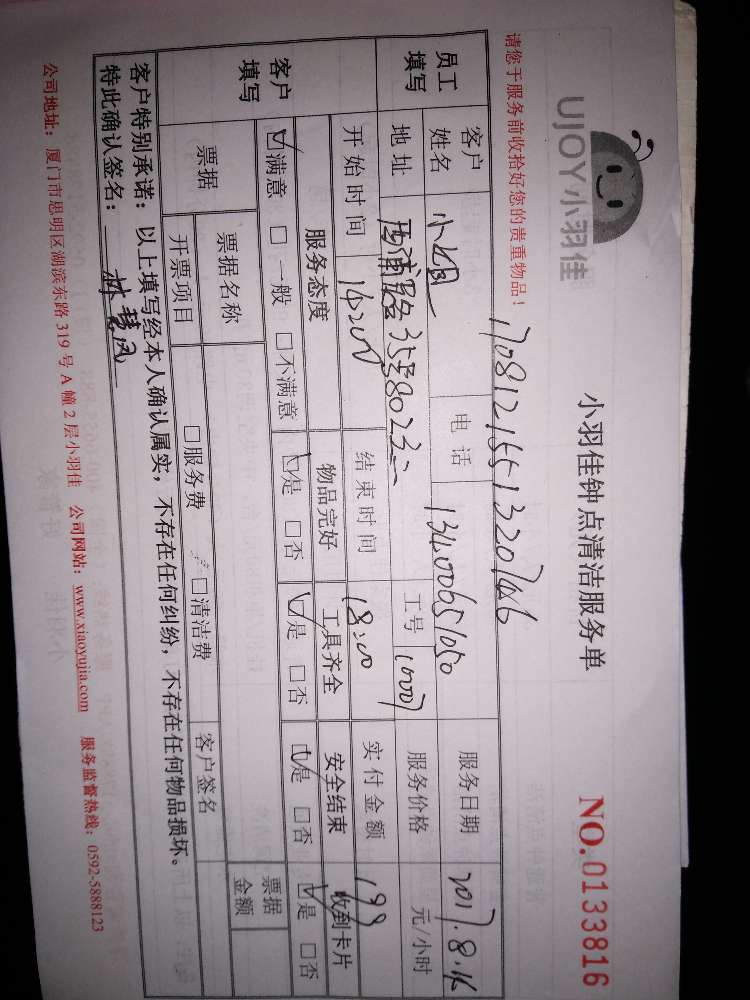 UJOY小羽佳
小羽佳钟点清洁服务单
NO.0133816
请您于服务前收拾好您的贵重物品！
员工填写
客户姓名 小姐 电话 13400651050 服务日期
地址 工号 服务价格 元/小时
客户填写
开始时间 结束时间 18:00 实付金额 199
服务态度 物品完好 工具齐全 安全结束 收到卡片
☑满意 □一般 □不满意 ☑是 □否 ☑是 □否 ☑是 □否 ☑是 □否
票据 票据名称 客户签名 票据金额
开票项目 □服务费 □清洁费
客户特别承诺：以上填写经本人确认属实，不存在任何纠纷，不存在任何物品损坏。
特此确认签名：
公司地址：厦门市思明区湖滨东路319号A幢2层小羽佳 公司网站：www.xiaoyujia.com 服务监督热线：0592-5888123